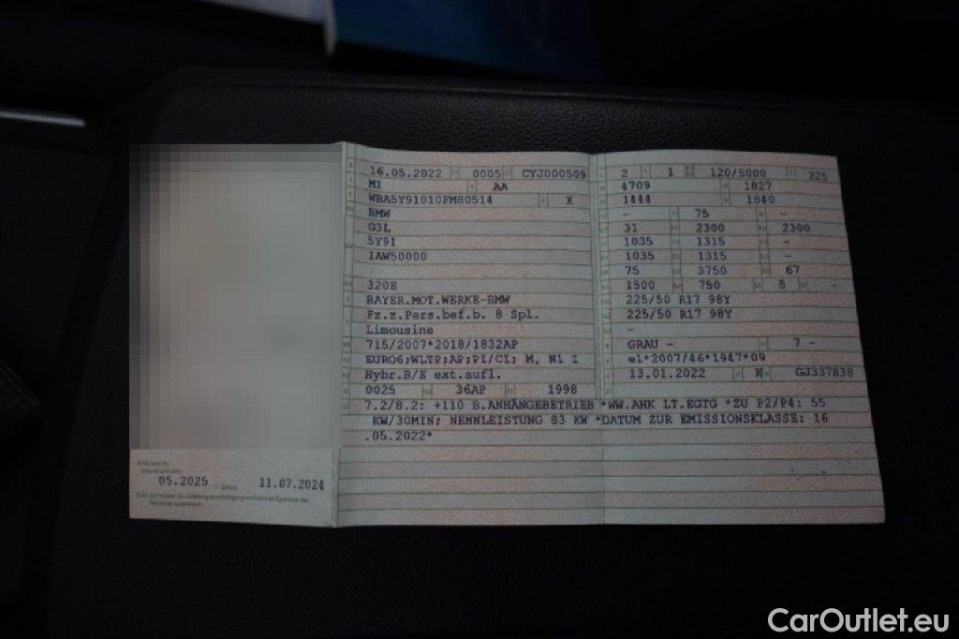 16.05.2022 0005 CYJ000509
M1 AA
WBA5Y91010FM80514 X
BMW
G3L
5Y91
IAW50000
320E
BAYER.MOT.WERKE-BMW
Fz.z.Pers.bef.b. 8 Spl.
Limousine
715/2007*2018/1832AP
EURO6;WLTP;AP;PI/CI; M, N1 I
Hybr.B/E ext.aufl.
0025 36AP 1998
2 1 120/5000 225
4709 1827
1444 1840
- 75 -
31 2300 2300
1035 1315 -
1035 1315 -
75 3750 67
1500 750 5 -
225/50 R17 98Y
225/50 R17 98Y
-
GRAU - 7 -
e1*2007/46*1947*09
13.01.2022 K GJ337838
7.2/8.2: +110 B.ANHÄNGEBETRIEB *WW.AHK LT.EGTG *ZU P2/P4: 55
KW/30MIN; NENNLEISTUNG 83 KW *DATUM ZUR EMISSIONSKLASSE: 16
.05.2022*
05.2025 11.07.2024
CarOutlet.eu